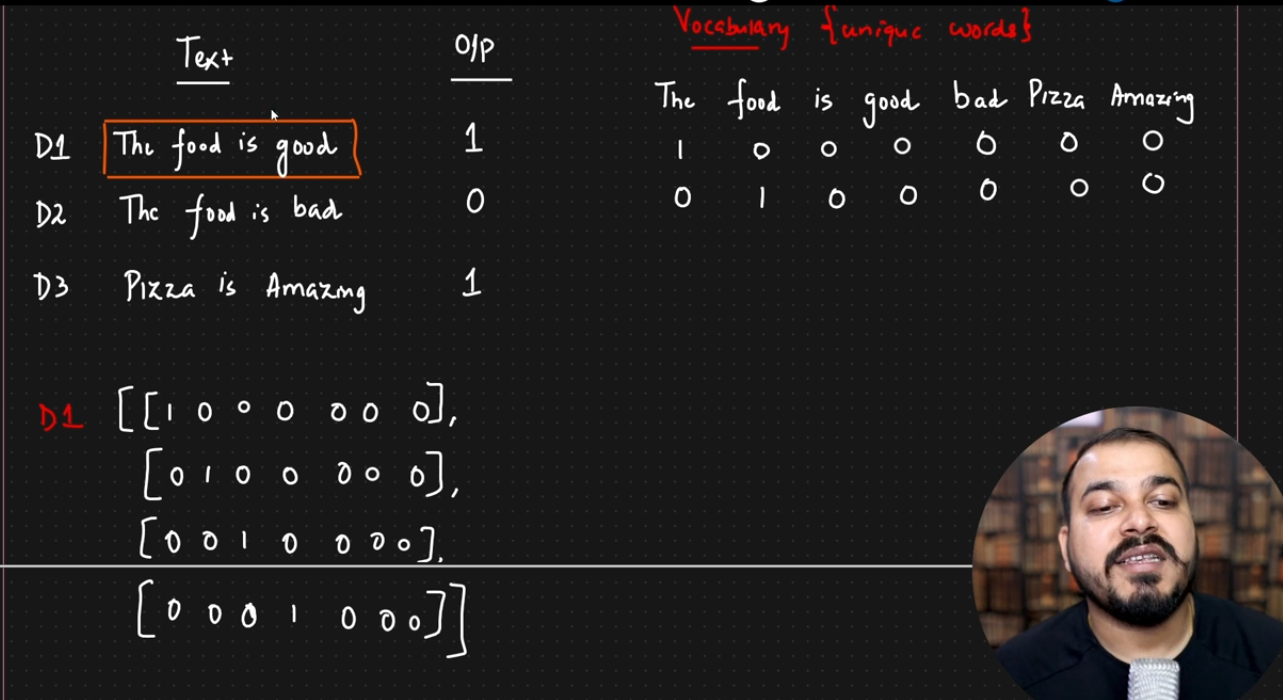 Text O/P
D1 The food is good 1
D2 The food is bad 0
D3 Pizza is Amazing 1
Vocabulary {unique words}
The food is good bad Pizza Amazing
1 0 0 0 0 0 0
0 1 0 0 0 0 0
D1 [[1 0 0 0 0 0 0],
[0 1 0 0 0 0 0],
[0 0 1 0 0 0 0],
[0 0 0 1 0 0 0]]